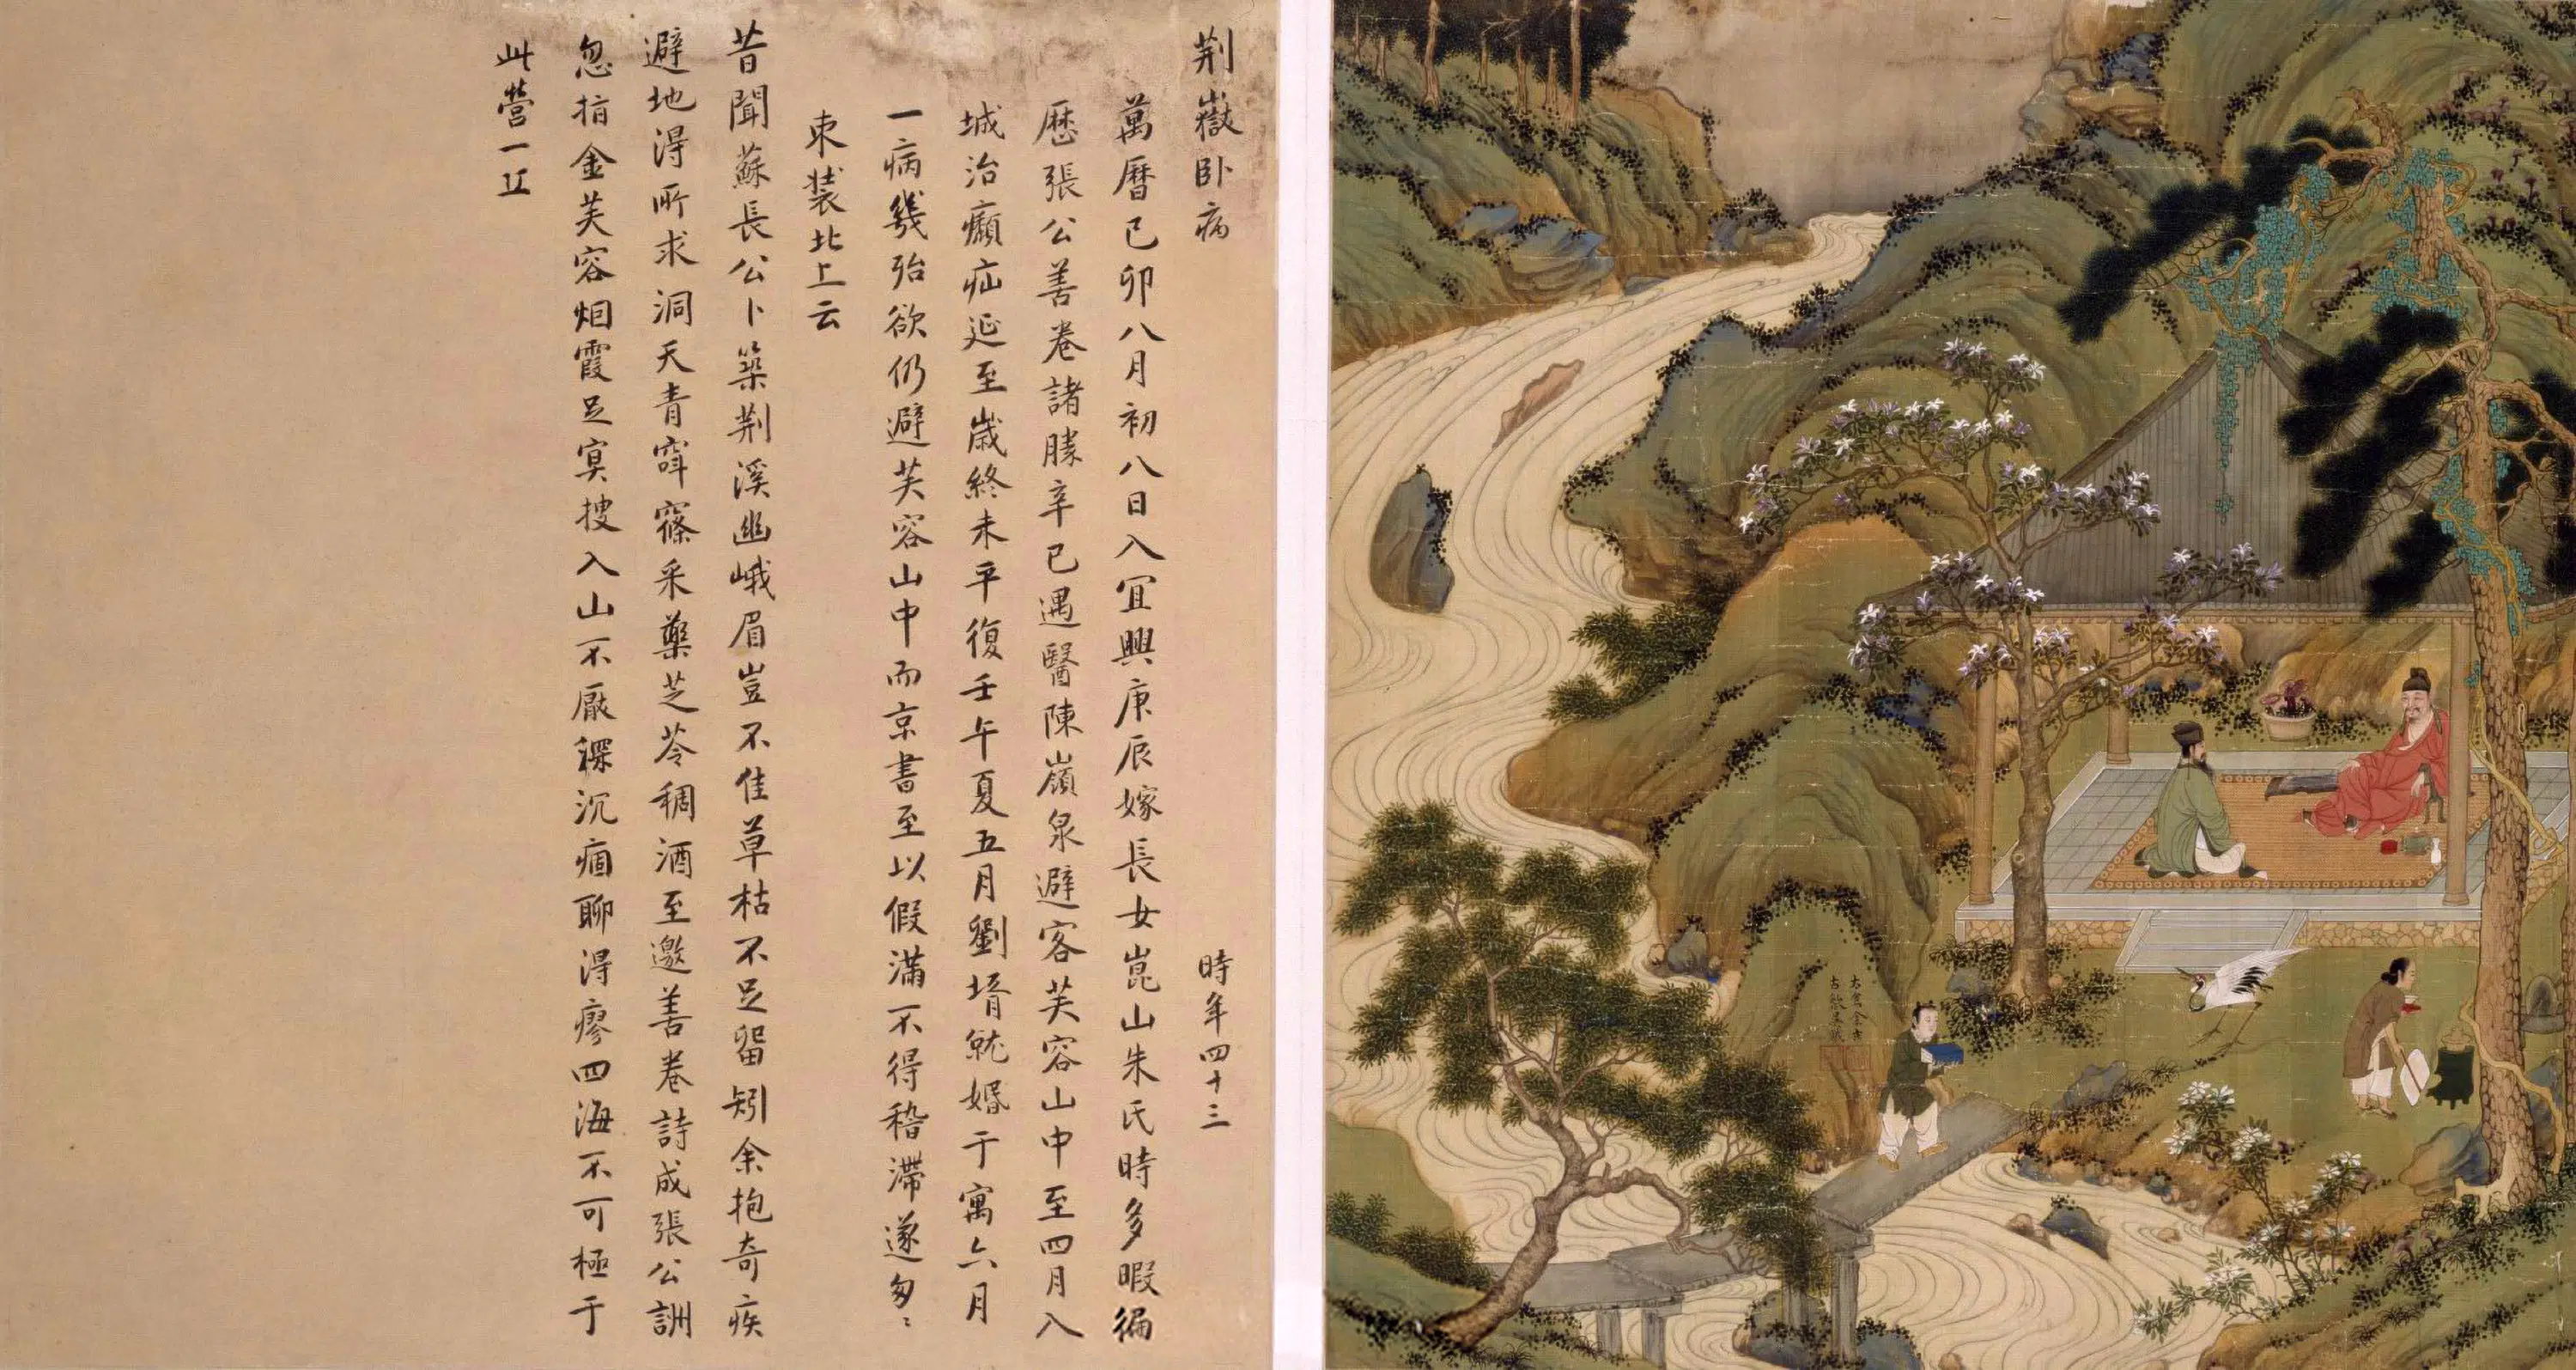 荆嶽卧病 時年四十三
萬曆己卯八月初八日入宜興庚辰嫁長女崑山朱氏時多暇徧
歷張公善卷諸勝辛巳遇醫陳嶺泉避客芙容山中至四月入
城治癩疝延至歲終未平復壬午夏五月劉壻就婚于寓六月
一病幾殆欲仍避芙容山中而京書至以假滿不得稽滯遂匆〻
束裝北上云
昔聞蘇長公卜築荆溪幽峨眉豈不佳草枯不足留矧余抱奇疾
避地得所求洞天青窈窱采藥芝苓稠酒至邀善卷詩成張公詶
忽指金芙容烟霞足冥搜入山不厭深沉痼聊得瘳四海不可極于
此營一丘